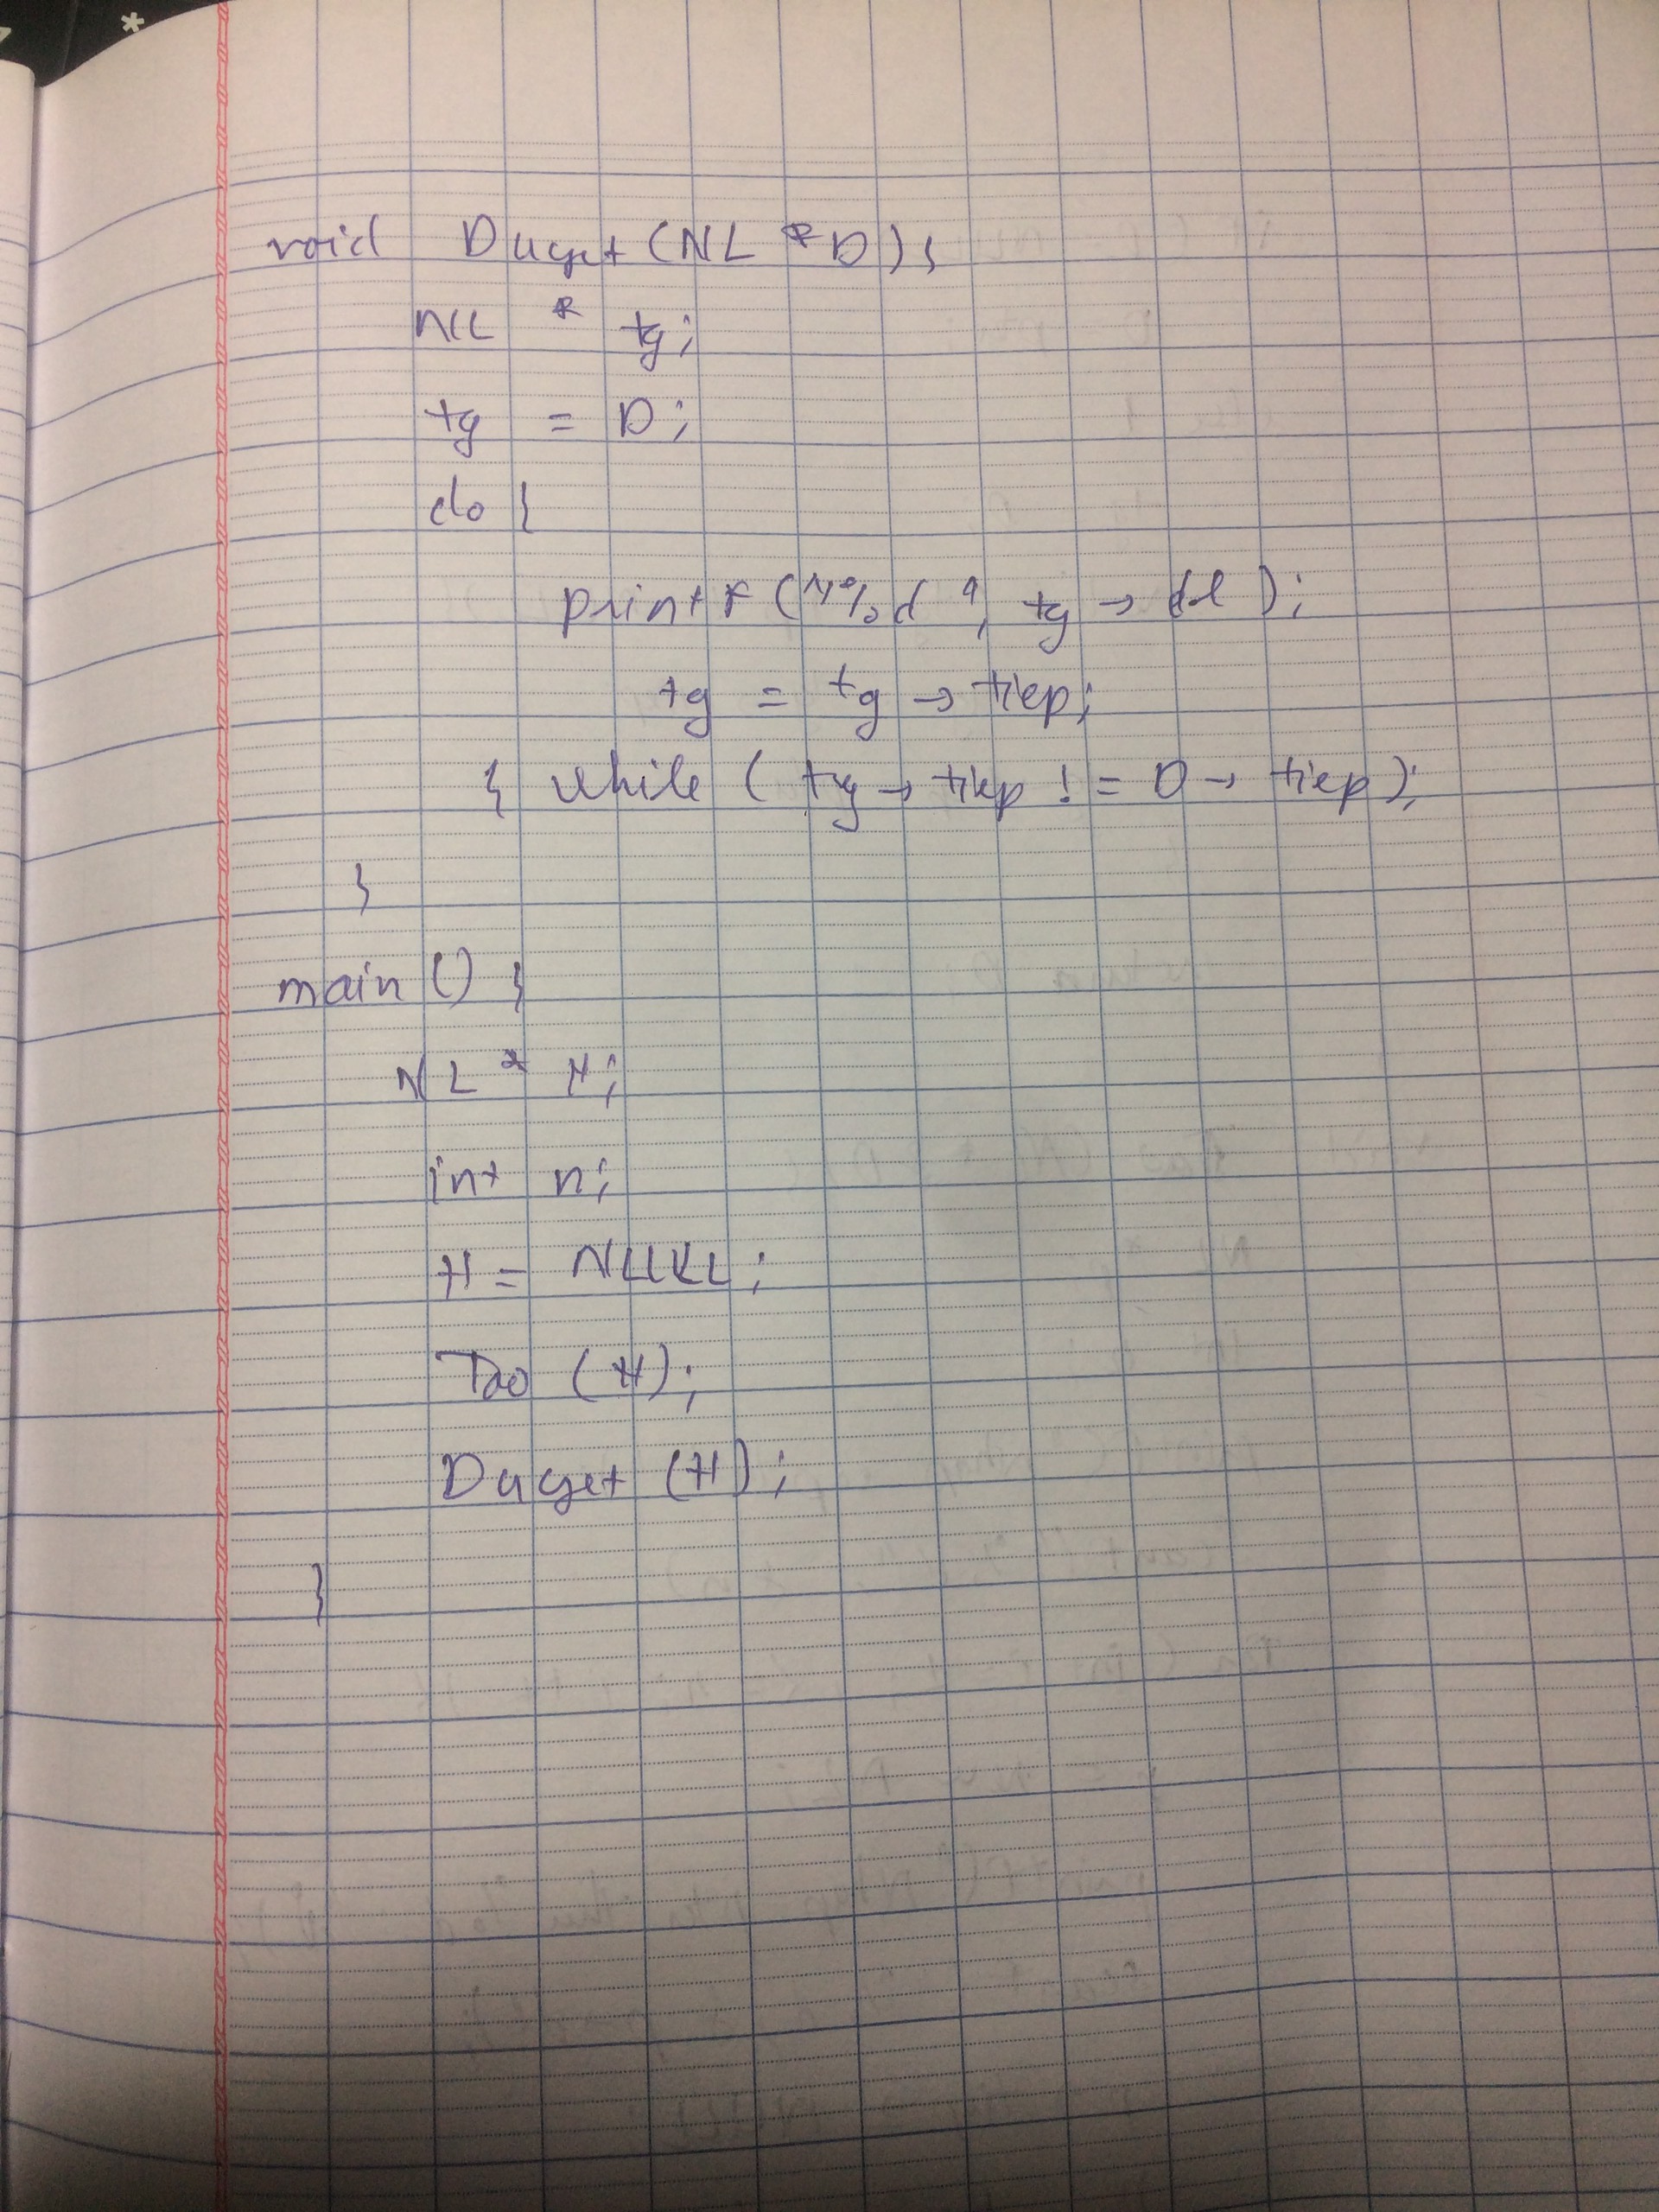 void Duyet (NL *D) {
NL * tg;
tg = D;
do {
printf ("%d", tg → dl );
tg = tg → tiep;
} while ( tg → tiep ! = D → tiep );
}
main () {
NL * H;
int n;
H = NULL;
Tao (H);
Duyet (H);
}